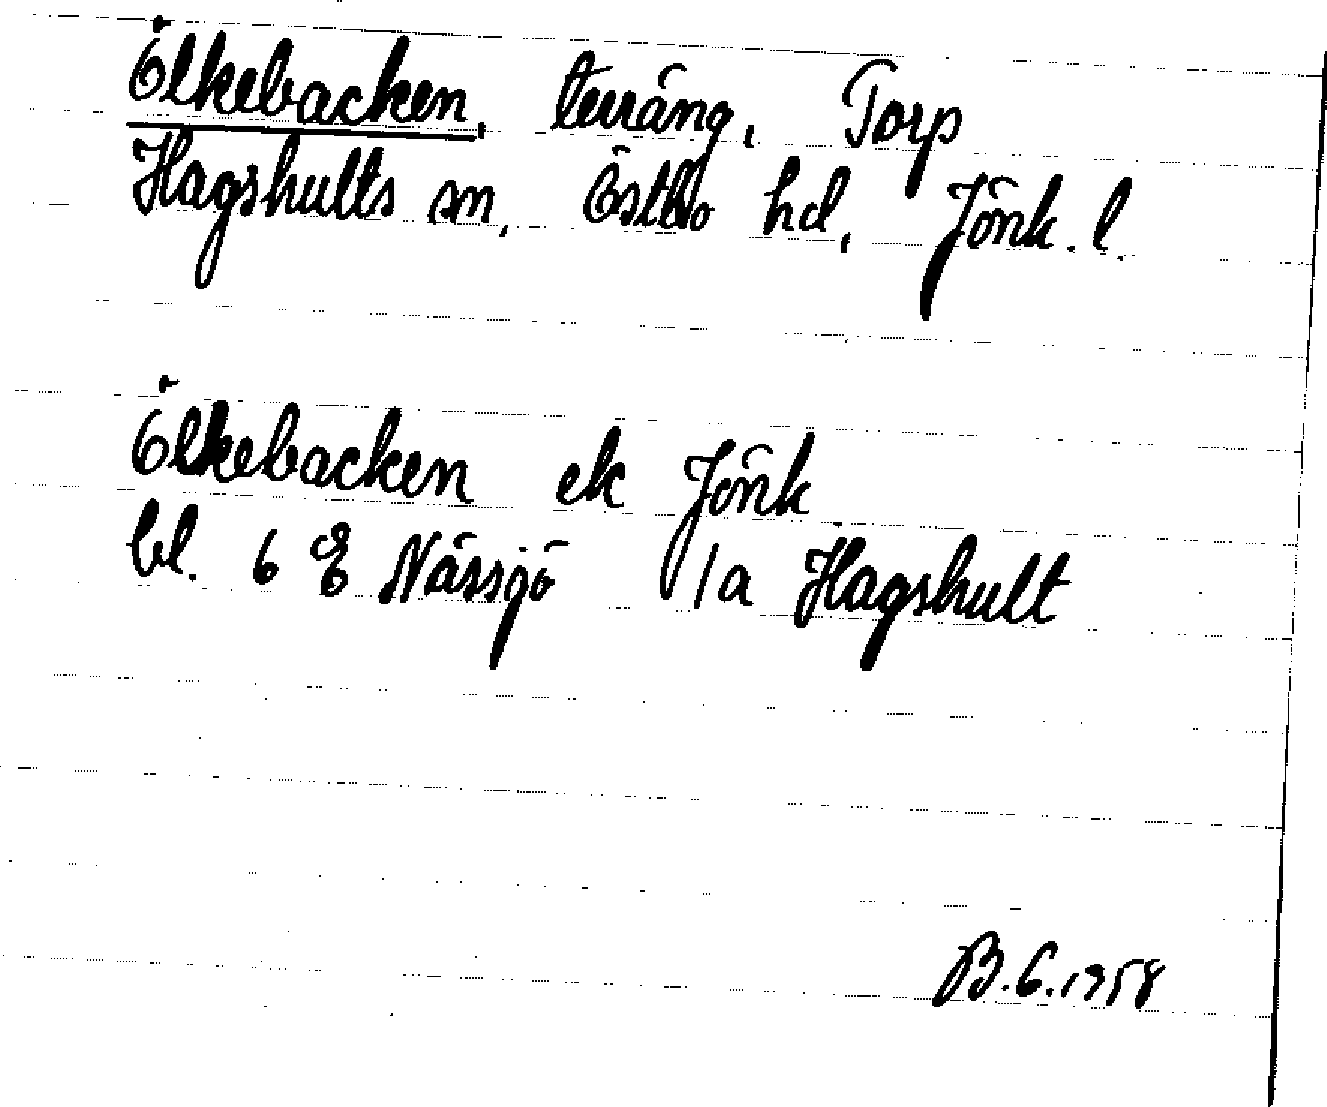 Ölkebacken, terräng, Torp
Hagshults sn, Östbo hd, Jönk. l.
Ölkebacken ek Jönk
bl. 6 E Nässjö 1a Hagshult
B.G.1958